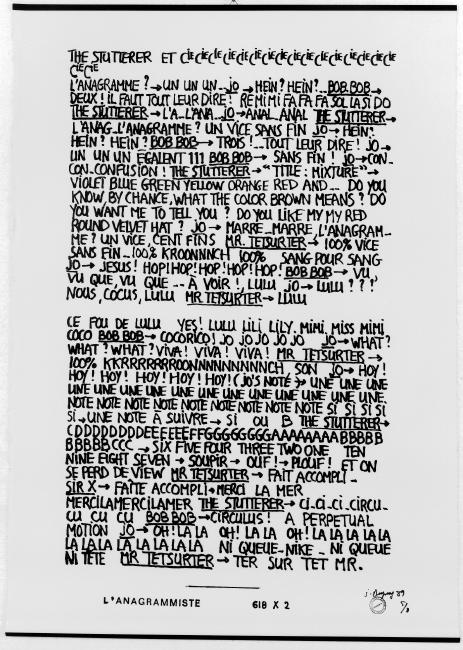 THE STUTTERER ET CIE CIE CIE CIE CIE CIE CIE CIE CIE CIE CIE CIE CIE CIE CIE
CIE CIE
L'ANAGRAMME? → UN UN UN... JO → HEIN? HEIN?.. BOB.BOB →
DEUX! IL FAUT TOUT LEUR DIRE! RE MI MI FA FA FA SOL LA SI DO
THE STUTTERER → L'A.. L'ANA.. JO → ANAL.. ANAL THE STUTTERER →
L'ANAG.. L'ANAGRAMME? UN VICE SANS FIN JO → HEIN?
HEIN? HEIN? BOB BOB → TROIS!.. TOUT LEUR DIRE! JO →
UN UN UN EGALENT 111 BOB BOB → SANS FIN! JO → CON..
CON.. CONFUSION! THE STUTTERER → "TITLE: MIXTURE" →
VIOLET BLUE GREEN YELLOW ORANGE RED AND... DO YOU
KNOW, BY CHANCE, WHAT THE COLOR BROWN MEANS? DO
YOU WANT ME TO TELL YOU? DO YOU LIKE MY MY RED
ROUND VELVET HAT? JO → MARRE.. MARRE, L'ANAGRAM-
ME? UN VICE, CENT FINS MR. TETSURTER → 100% VICE
SANS FIN.. 100% KROONNNCH 100% SANG POUR SANG
JO → JESUS! HOP! HOP! HOP! HOP! HOP! BOB BOB → VU,
VU QUE, VU QUE... À VOIR!, LULU JO → LULU???
NOUS, COCUS, LULU MR TETSURTER → LULU
CE FOU DE LULU YES! LULU LILI LILY. MIMI, MISS MIMI
COCO BOB BOB → COCORICO! JO JO JO JO JO JO → WHAT?
WHAT? WHAT? VIVA! VIVA! VIVA! MR TETSURTER →
100% KKRRRRRRROONNNNNNNNCH SON JO → HOY!
HOY! HOY! HOY! HOY! HOY! (JO'S NOTE) → UNE UNE UNE
UNE UNE UNE UNE UNE UNE UNE UNE UNE UNE UNE UNE.
NOTE NOTE NOTE NOTE NOTE NOTE NOTE NOTE SI SI SI SI
SI → UNE NOTE À SUIVRE → SI OU B THE STUTTERER →
CDDDDDDDDEEEEEFFGGGGGGGAAAAAAAABBBBB
BBBBBCCC → SIX FIVE FOUR THREE TWO ONE TEN
NINE EIGHT SEVEN → SOUPIR → OUF! → PLOUF! ET ON
SE PERD DE VIEW MR TETSURTER → FAIT ACCOMPLI →
SIR X → FAÎTE ACCOMPLI → MERCI LA MER
MERCILAMERCILAMER THE STUTTERER → CI-CI-CI-CIRCU-
CU CU CU BOB BOB → CIRCULUS! A PERPETUAL
MOTION JO → OH! LA LA OH! LA LA OH! LA LA LA LA LA
LA LA LA LA LA LA LA LA LA NI QUEUE-NIKE.. NI QUEUE
NI TÊTE MR TETSURTER → TER SUR TET MR.
L'ANAGRAMMISTE 618 X 2